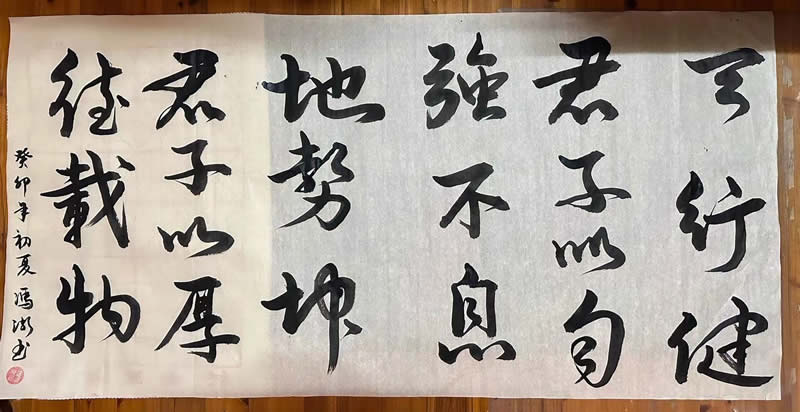 天行健
君子以自
強不息
地勢坤
君子以厚
德載物
癸卯年初夏馮湖书